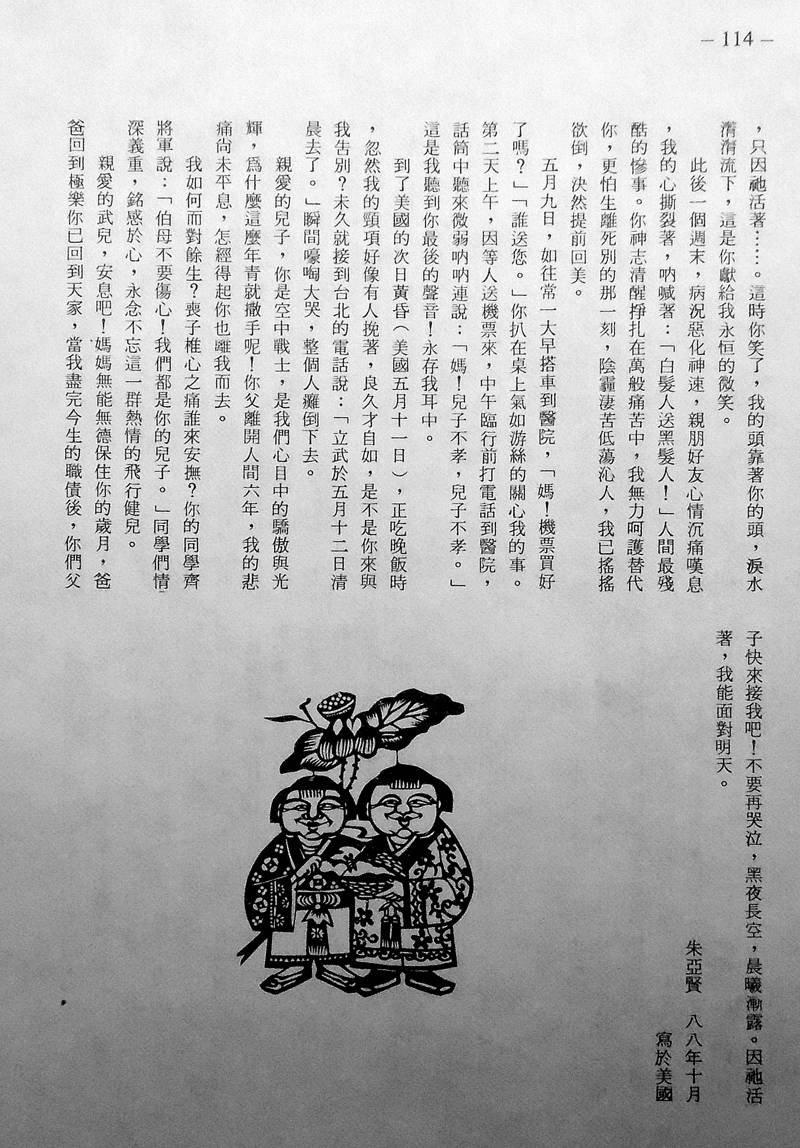 – 114 –
，只因祂活著……。這時你笑了，我的頭靠著你的頭，淚水
潸潸流下，這是你獻給我永恒的微笑。
此後一個週末，病況惡化神速，親朋好友心情沉痛嘆息
，我的心撕裂著，吶喊著：「白髮人送黑髮人！」人間最殘
酷的慘事。你神志清醒掙扎在萬般痛苦中，我無力呵護替代
你，更怕生離死別的那一刻，陰霾淒苦低蕩沁人，我已搖搖
欲倒，決然提前回美。
五月九日，如往常一大早搭車到醫院，「媽！機票買好
了嗎？」「誰送您。」你扒在桌上氣如游絲的關心我的事。
第二天上午，因等人送機票來，中午臨行前打電話到醫院，
話筒中聽來微弱吶吶連說：「媽！兒子不孝，兒子不孝。」
這是我聽到你最後的聲音！永存我耳中。
到了美國的次日黃昏（美國五月十一日），正吃晚飯時
，忽然我的頸項好像有人挽著，良久才自如，是不是你來與
我告別？未久就接到台北的電話說：「立武於五月十二日清
晨去了。」瞬間嚎啕大哭，整個人癱倒下去。
親愛的兒子，你是空中戰士，是我們心目中的驕傲與光
輝，為什麼這麼年青就撒手呢！你父離開人間六年，我的悲
痛尚未平息，怎經得起你也離我而去。
我如何而對餘生？喪子椎心之痛誰來安撫？你的同學齊
將軍說：「伯母不要傷心！我們都是你的兒子。」同學們情
深義重，銘感於心，永念不忘這一群熱情的飛行健兒。
親愛的武兒，安息吧！媽媽無能無德保住你的歲月，爸
爸回到極樂你已回到天家，當我盡完今生的職債後，你們父
子快來接我吧！不要再哭泣，黑夜長空，晨曦漸露。因祂活
著，我能面對明天。
朱亞賢　八八年十月
寫於美國